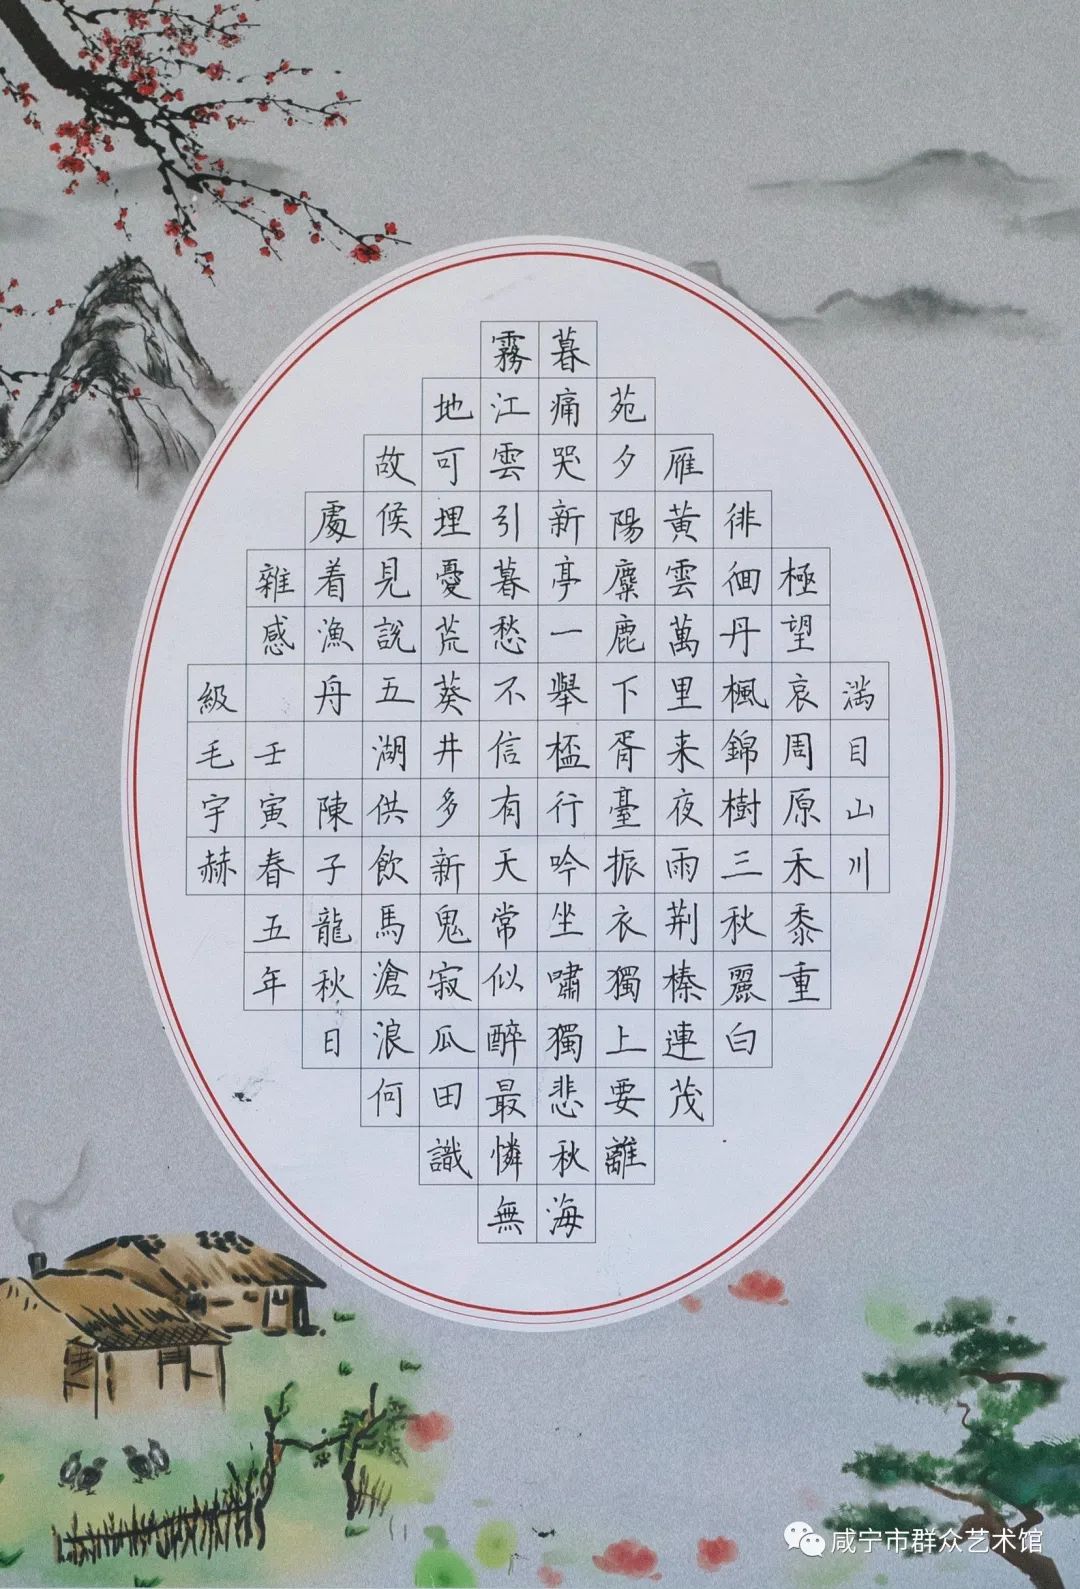 满目山川
極望哀周原禾黍重
徘徊丹楓錦樹三秋麗白
雁黄雲萬里来夜雨荆榛連茂
苑夕陽麋鹿下胥臺振衣獨上要離
暮痛哭新亭一舉盃行吟坐嘯獨悲秋海
霧江雲引暮愁不信有天常似醉最憐無
地可埋憂荒葵井多新鬼寂瓜田識
故候見説五湖供飲馬滄浪何
處着漁舟 陳子龍秋日
雜感 壬寅春五年
級毛宇赫
咸宁市群众艺术馆